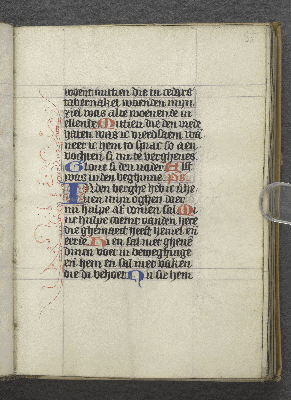 woent mitten die in cedars
tabernakel woenden mijn
ziel was alte woenende in
ellende Mitten die den vrede
haten was ic vreedsaem wā
neer ic hem to sprac so aen
vochten si mi te vergheues
Glorie si den vader Alst
was in den beghinne Ps
IN den berghe heb ic ghe
heuen mijn oghen
mi hulpe af comen sal Mi
ne hulpe coemt vanden here
die ghemaect heeft hemel en
eerde Hi en sal niet gheue
dinen voet in beweghinge
en hem en sal niet vaken
die di behoet Nu sie hem